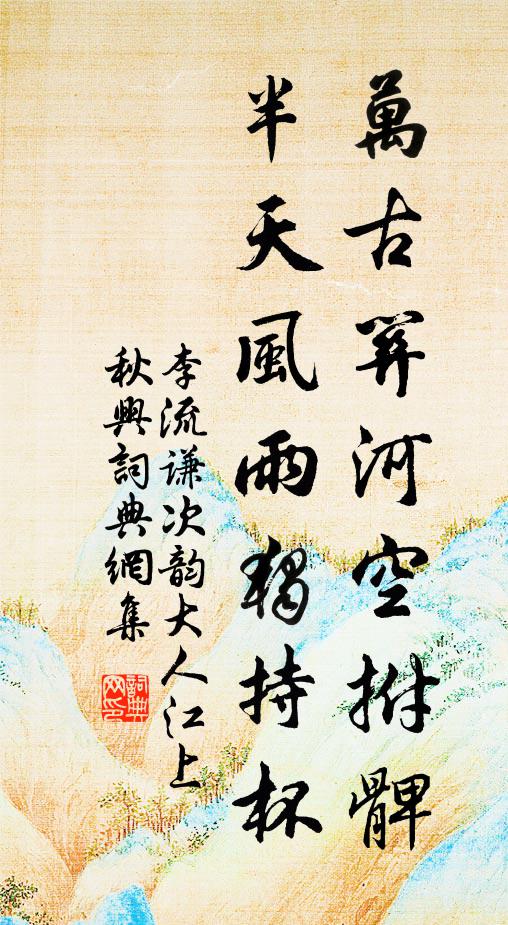 萬古關河空拊髀
半天風雨獨持杯
李流谦次韵大人江上
秋興詞典網集
詞典网印